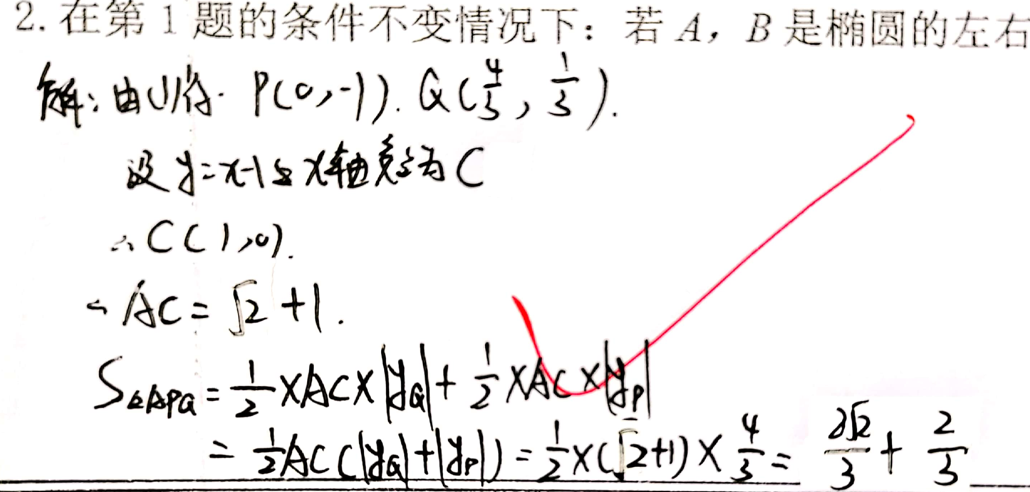 2. 在第 1 题的条件不变情况下：若 A，B 是椭圆的左右
解：由(1)得. P(0,-1). Q(4/3, 1/3).
设 y=x-1与x轴交点为C
∴ C(1,0).
∴ AC = √2 +1.
S△APQ = 1/2 ×AC×|yQ| + 1/2 ×AC×|yP|
= 1/2 AC(|yQ|+|yP|) = 1/2 ×(√2+1)× 4/3 = 2√2/3 + 2/3